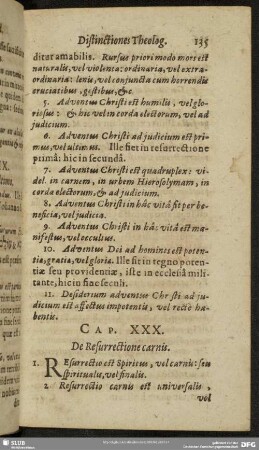 Distinctiones Theolog. 135
ditor amabilis. Rursus priori modo mors est
naturalis, vel violenta: ordinaria, vel extra-
ordinaria: lenis, vel conjuncta cum horrendis
cruciatibus, gestibus, &c.
5. Adventus Christi est humilis, vel glo-
riosus: & hic vel in corda electorum, vel ad
judicium.
6. Adventus Christi ad judicium est pri-
mus, vel ultimus. Ille fiet in resurrectione
primâ: hic in secundâ.
7. Adventus Christi est quadruplex: vi-
del. in carnem, in urbem Hierosolymam, in
corda electorum, & ad judicium.
8. Adventus Christi in hâc vitâ fit per be-
neficia, vel judicia.
9. Adventus Christi in hâc vitâ est ma-
nifestus, vel occultus.
10. Adventus Dei ad homines est poten-
tiæ, gratiæ, vel gloriæ. Ille fit in regno poten-
tiæ seu providentiæ, iste in ecclesiâ mili-
tante, hic in fine seculi.
11. Desiderium adventus Christi ad ju-
dicium est affectus impotentis, vel rectè ha-
bentis.
CAP. XXX.
De Resurrectione carnis.
1. REsurrectio est Spiritus, vel carnis: seu
spiritualis, vel finalis.
2 Resurrectio carnis est universalis,
vel
SLUB